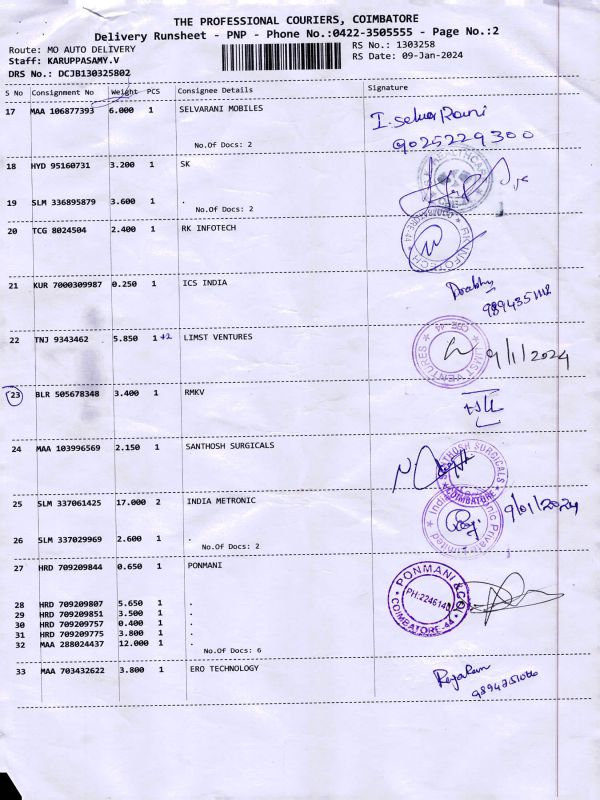 THE PROFESSIONAL COURIERS, COIMBATORE
Delivery Runsheet - PNP - Phone No.:0422-3505555 - Page No.:2
Route: MO AUTO DELIVERY
RS No.: 1303258
Staff: KARUPPASAMY.V
RS Date: 09-Jan-2024
DRS No.: DCJB130325802
S No Consignment No Weight PCS Consignee Details Signature
17 MAA 106877393 6.000 1 SELVARANI MOBILES
I. selva Rani
No.Of Docs: 2
9025229300
18 HYD 95160731 3.200 1 SK
19 SLM 336895879 3.600 1 .
No.Of Docs: 2
20 TCG 8024504 2.400 1 RK INFOTECH
RK INFOTECH
21 KUR 7000309987 0.250 1 ICS INDIA
Prabhu
22 TNJ 9343462 5.850 1 +2 LIMST VENTURES
LIMST VENTURES
9/1/2024
23 BLR 505678348 3.400 1 RMKV
24 MAA 103996569 2.150 1 SANTHOSH SURGICALS
SANTHOSH SURGICALS
COIMBATORE
25 SLM 337061425 17.000 2 INDIA METRONIC
9/01/2024
26 SLM 337029969 2.600 1 .
No.Of Docs: 2
27 HRD 709209844 0.650 1 PONMANI
PONMANI & CO.
PH:2246140
COIMBATORE-44
28 HRD 709209807 5.650 1 .
29 HRD 709209851 3.500 1 .
30 HRD 709209757 0.400 1 .
31 HRD 709209775 3.800 1 .
32 MAA 288024437 12.000 1 .
No.Of Docs: 6
33 MAA 703432622 3.800 1 ERO TECHNOLOGY